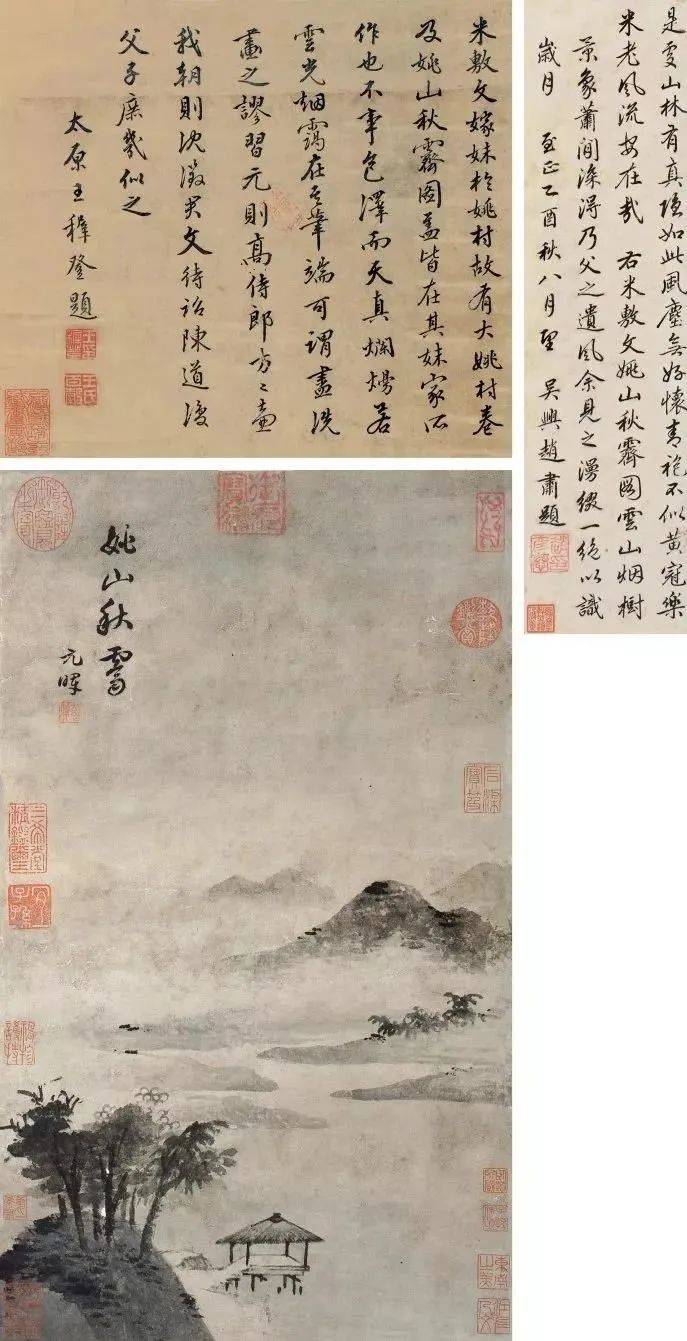 米敷文嫁妹於姚村故有大姚村卷
及姚山秋霽圖蓋皆在其妹家所
作也不事色澤而天真爛熳若
雲光烟靄在筆端可謂盡洗
畫之謬習元則高侍郎方〻壺
我朝則沈徵君文待詔陳道復
父子庶幾似之
太原王穉登題
是處山林有真隱如此風塵無好懷青袍不似黃冠樂
米老風流安在哉 右米敷文姚山秋霽圖雲山烟樹
景象蕭閒深得乃父之遺風余見之漫綴一絕以識
歲月 至正乙酉秋八月望 吳興趙肅題
姚山秋霽
元暉